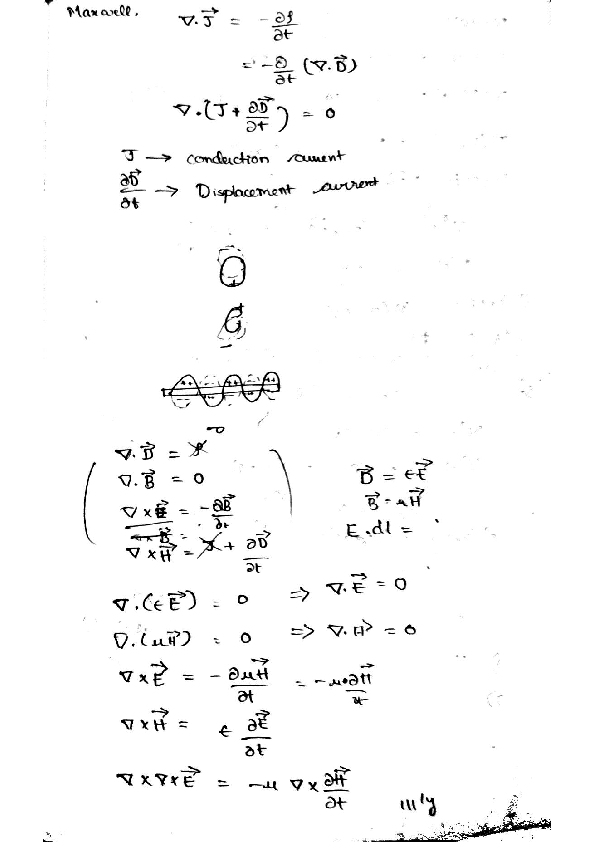 Maxwell.
∇.J⃗ = -∂ρ/∂t
= -∂/∂t (∇.D⃗)
∇.(J + ∂D⃗/∂t) = 0
J → conduction current
∂D⃗/∂t → Displacement current
∇.D⃗ = ρ 0
∇.B⃗ = 0
∇×E = -∂B⃗/∂t
∇×H⃗ = J + ∂D⃗/∂t
D⃗ = ϵE⃗
B⃗ = μH⃗
E.dl =
∇.(ϵE⃗) = 0 ⇒ ∇.E⃗ = 0
∇.(μH⃗) = 0 ⇒ ∇.H⃗ = 0
∇×E⃗ = -∂μH⃗/∂t = -μ∂H⃗/∂t
∇×H⃗ = ϵ ∂E⃗/∂t
∇×∇×E⃗ = -μ ∇×∂H⃗/∂t
llly